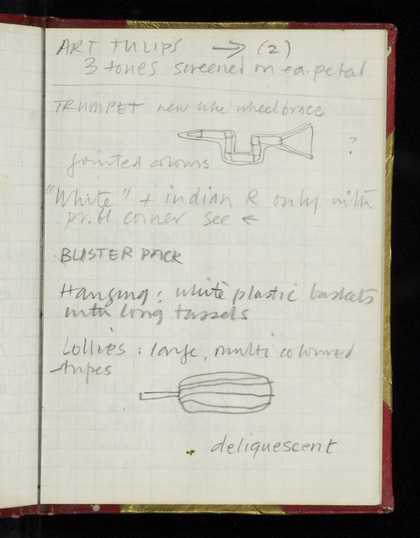 ART TULIPS → (2)
3 tones screened on ea. petal
TRUMPET new like wheelbrace
?
jointed colours
"White" + indian R only with
pr. bl corner see ←
BLISTER PACK
Hanging: white plastic baskets
with long tassels
Lollies: large, multi coloured
stripes
deliquescent